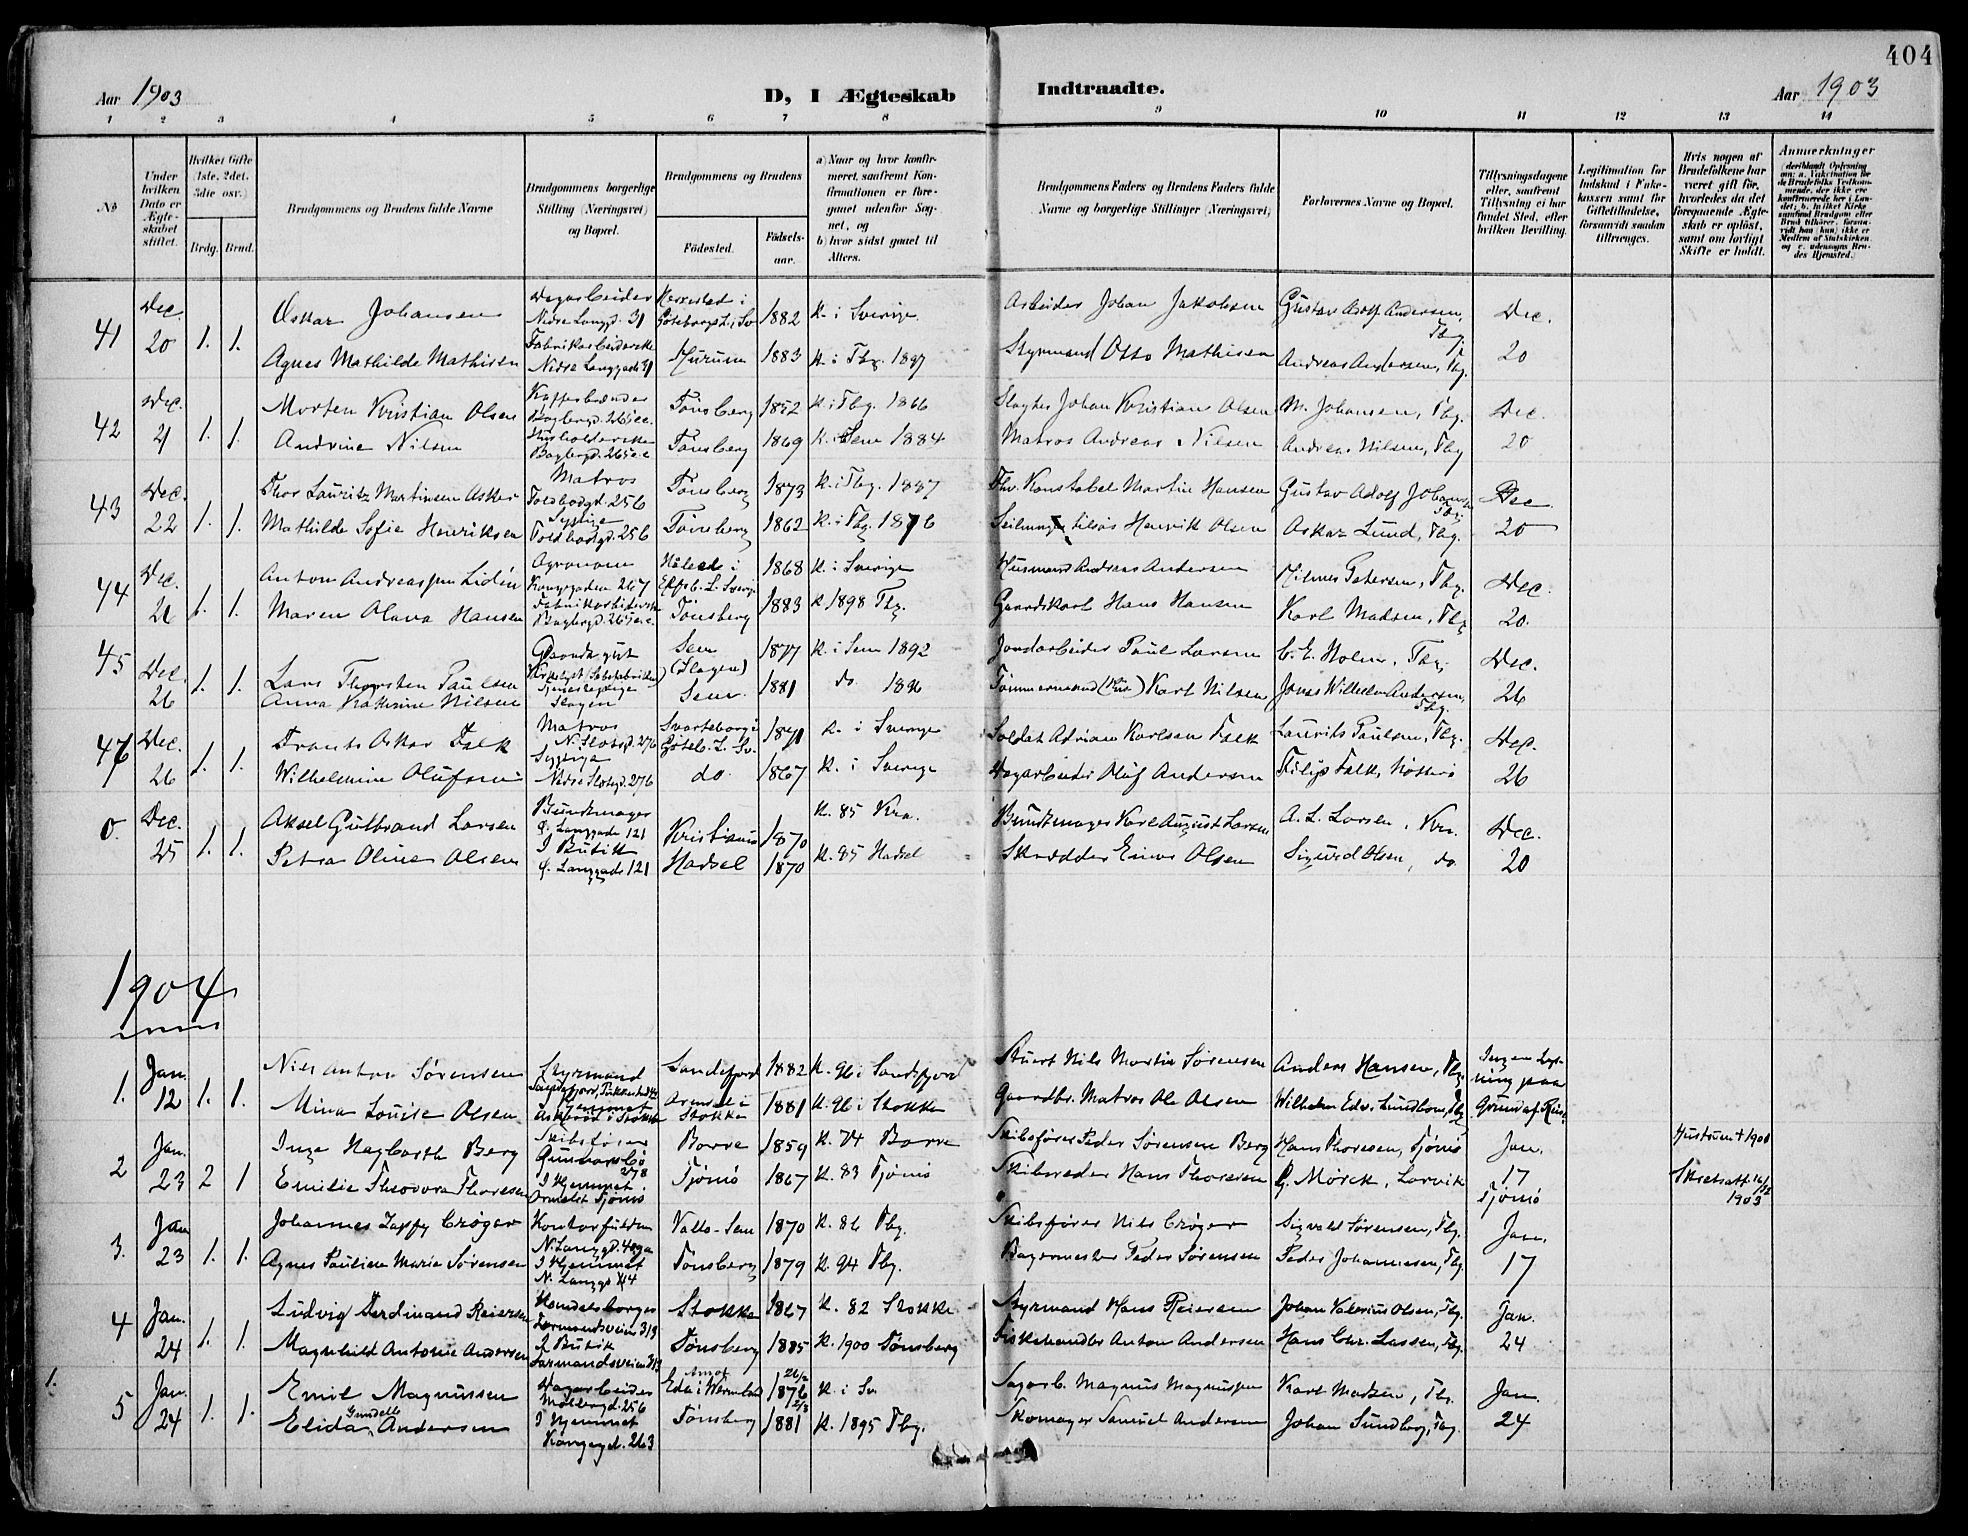 404
Aar 1903
D, I Ægteskab Indtraadte.
Aar 1903
1 2 3 4 5 6 7 8 9 10 11 12 13 14
No
Under hvilken Dato er Ægteskabet stiftet.
Hvilket Gifte (1ste, 2det, 3die osv.)
Brdg. Brud.
Brudgommens og Brudens fulde Navne
Brudgommens borgerlige Stilling (Næringsvei) og Bopæl.
Brudgommens og Brudens
Fødested.
Fødselsaar.
a) Naar og hvor konfirmeret, saafremt Konfirmationen er foregaaet udenfor Sognet, og
b) hvor sidst gaaet til Alters.
Brudgommens Faders og Brudens Faders fulde Navne og borgerlige Stillinger (Næringsvei)
Forlovernes Navne og Bopæl.
Tillysningsdagene eller, saafremt Tillysning ei har fundet Sted, efter hvilken Bevilling.
Legitimation for Indskud i Enkekassen samt for Giftetilladelse, forsaavidt saadan tiltrænges.
Hvis nogen af Brudefolkene har været gift før, hvorledes da det foregaaende Ægteskab er opløst, samt om lovligt Skifte er holdt.
Anmærkninger
41 Dec. 20 1. 1.
Oskar Johansen Dagarbeider Nedre Langgd. 31 Göteborgs L. i Sv. 1882 K. i Sverige. Arbeider Johan Jakobsen Gustav Adolf Andersen, Tbg. Dec.
Agnes Mathilde Mathisen Fabrikarbeiderske Nedre Langgade 31 Hurum 1883 K. i Tbg. 1897 Styrmand Otto Mathisen Andreas Andersen, Tbg. 20
42 Dec. 21 1. 1.
Morten Kristian Olsen Kaffebrænder Tønsberg 1852 K. i Tbg. 1866 Slagter Johan Kristian Olsen M. Johansen, Tbg. Dec.
Andrine Nilsen Husholderske Tønsberg 1869 K. i Sem 1884 Matros Andreas Nilsen Andreas Nilsen, Tbg 20
43 Dec. 22 1. 1.
Thor Lauritz Martinsen Asker Matros Toldbodgd. 256 Tønsberg 1873 K. i Tbg. 1887 Fhv. Konstabel Martin Hansen Gustav Adolf Johansen Tbg. Dec
Mathilde Sofie Henriksen Syerske Toldbodgd. 256 Tønsberg 1862 K. i Tbg 1876 Henrik Olsen Oskar Lund, Tbg. 20
44 Dec. 26 1. 1.
Anton Andreassen Lidén Agronom Kongsgaden 267 1868 K. i Sverige Husmand Andreas Andersen Hilmer Petersen, Tbg. Dec.
Maren Olava Hansen Fabrikarbeiderske Tønsberg 1883 K 1898 Tbg. Gaardskarl Hans Hansen Karl Madsen, Tbg 20.
45 Dec. 26 1. 1.
Lars Thorsten Paulsen Gaardsgut Sem (Slagen) 1877 K. i Sem 1892 Jordarbeider Paul Larsen C. E. Holm, Tbg. Dec.
Anna Kathrine Nilsen Tjenestepige Slagen Sem. 1881 do. 1896 Tømmermand Karl Nilsen Jonas Wilhelm Andersen, Tbg. 26
46 Dec. 26 1. 1.
Frants Oskar Falk Matros N. Slotsgd. 276 Svarteborg i Göteb. L. Sv. 1871 K. i Sverige Soldat Adrian Karlsen Falk Laurits Paulsen, Tbg. Dec.
Wilhelmine Olufsen Sypige Nedre Slotsgd. 276 do. 1867 K. i Sverige Dagarbeider Oluf Andersen Filip Falk, Nøtterø 26
0. Dec. 25 1. 1.
Aksel Gulbrand Larsen Bundtmager Ø. Langgade 121 Kristiania 1870 K. 85 Kra. Bundtmager Karl August Larsen A. L. Larsen, Kra. Dec.
Petra Oline Olsen I Butik Ø. Langgade 121 Hadsel 1870 K. 85 Hadsel Skrædder Einar Olsen Sigurd Olsen, do. 20
1904
1. Jan. 12 1. 1.
Nils Anton Sørensen Styrmand Sandefjord 1882 K. 96 i Sandefjord Stuert Nils Martin Sørensen Anders Hansen, Tbg. Ingen Lysning paa
Mina Louise Olsen I Hjemmet Stokke 1881 K. 96 i Stokke Gaardbr. Matros Ole Olsen Wilhelm Edv. Lundbom, Tbg Grund af Reise
2 Jan. 23 2 1
Inge Hagbarth Berg Skibsfører Gunnarsbø 278 Borre 1859 K. 74 Borre Skibsfører Peder Sørensen Berg Hans Thoresen, Tjømø Jan. Hustruen † 1900
Emilie Theodora Thoresen I Hjemmet Tjømø Tjømø 1867 K. 83 Tjømø Skibsreder Hans Thoresen G. Mørck, Larvik 17 Tjømø 1903
3. Jan 23 1. 1.
Johannes Zapffe Crøger Vallø - Sem 1870 K. 86 Tbg. Skibsfører Nils Crøger Sigvald Sørensen, Tbg. Jan.
Agnes Pauline Marie Sørensen I Hjemmet N. Langgd 44 Tønsberg 1879 K. 94 Tbg. Bagermester Peder Sørensen Peder Johannesen, Tbg. 17
4 Jan. 24 1. 1.
Ludvig Ferdinand Reiersen Handelsborger Farmandsveien 313 Stokke 1867 K. 82 Stokke Styrmand Hans Reiersen Johan Valerius Olsen, Tbg. Jan.
Magnhild Antonie Andersen I Butik Farmandsveien 313 Tønsberg 1885 K. 1900 Tønsberg Fiskehandler Anton Andersen Hans Chr. Lassen, Tbg. 24
1.
5 Jan. 24 1. 1.
Emil Magnussen Dagarbeider Møllergd. 256 Eda i Wermland 26/2 1876 K. i Sv. Magnus Magnussen Karl Madsen, Tbg. Jan.
Elida Gundelle Andersen I Hjemmet Kongegd. 263 Tønsberg 2/8 1881 K. 1895 Tbg. Skomager Samuel Andersen Johan Sundberg, Tbg. 24